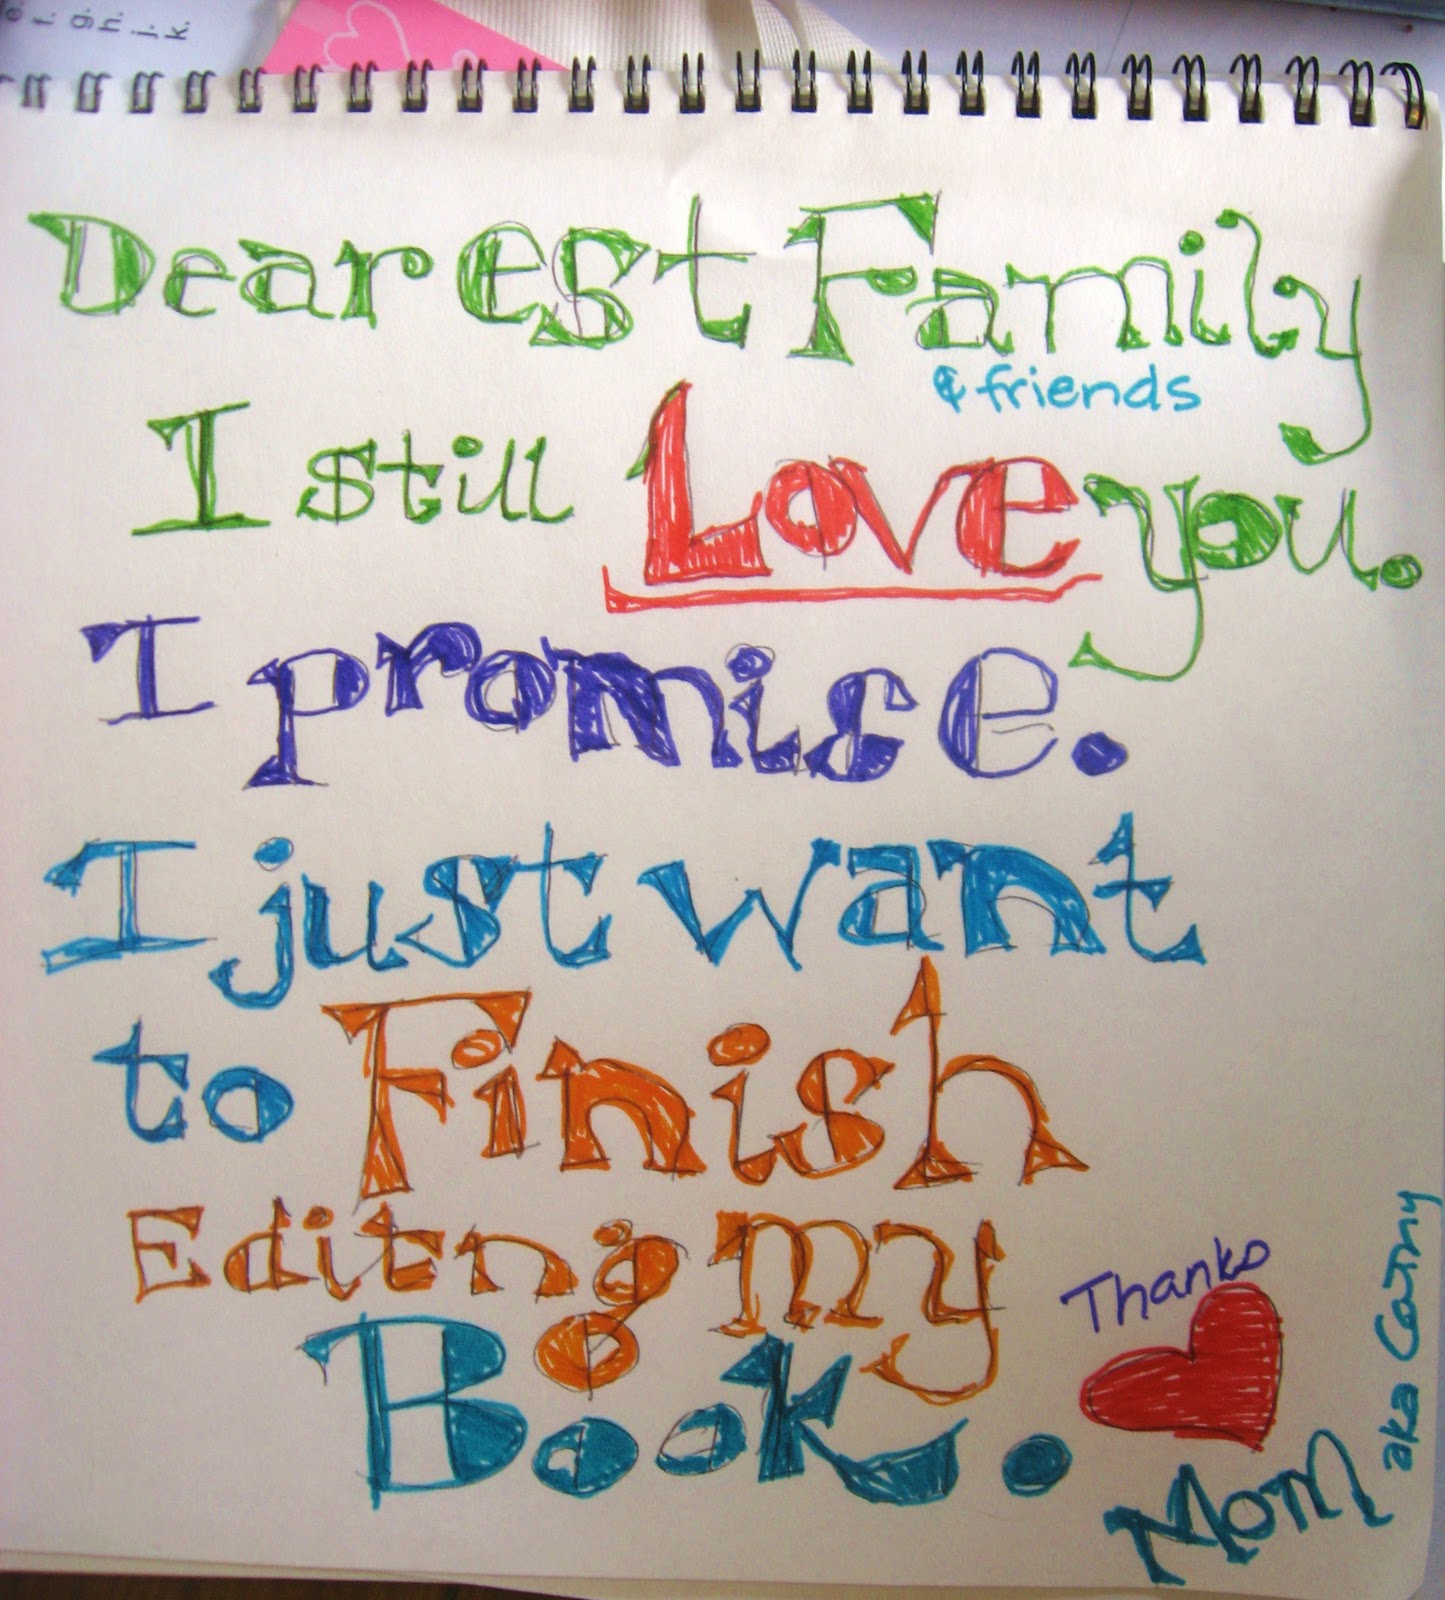 g.
h.
k.
Dearest Family
& friends
I still Love you.
I promise.
I just want
to Finish
Editng my
Book.
Thanks
Mom
aka Cathy